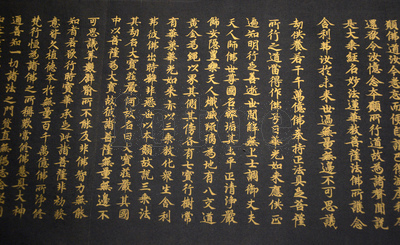 願佛道
還欲令汝憶念本願所行道故為諸聲聞說
是大乘經名妙法蓮華教菩薩法佛所護念
舍利弗汝於未來世過無量無邊不可思議
劫供養若干千萬億佛奉持正法具足菩薩
所行之道當得作佛号曰華光如來應供正
遍知明行足善逝世間解無上士調御丈夫
天人師佛世尊國名離垢其土平正清淨嚴
飾安隱豐樂天人熾盛琉璃為地有八交道
黃金為繩以界其側其傍各有七寶行樹常
有華菓華光如來亦以三乘教化眾生舍利
弗彼佛出時雖非惡世以本願故說三乘法
其劫名大寶莊嚴何故名曰大寶莊嚴其國
中以菩薩為大寶故彼諸菩薩無量無邊不
可思議算數譬喻所不能及非佛智力無能
知者若欲行時寶華承足此諸菩薩非初發
意皆久殖德本於無量百千萬億佛所淨修
梵行恒為諸佛之所稱歎常修佛慧具大神
通善知一切諸法之門質直無偽志念